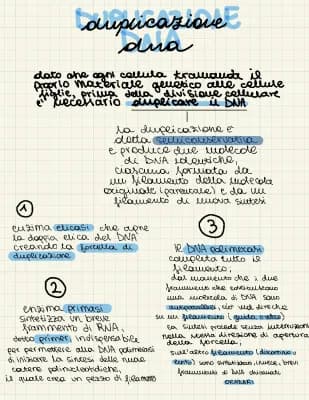 DUPLICAZIONE
DNA
duplicazione
dna
dato che ogni cellula tramanda il
proprio materiale genetico alle cellule
figlie, prima della divisione cellulare
è necessario duplicare il DNA
la duplicazione è
detta semiconservativa
e produce due molecole
di DNA identiche,
ciascuna formata da
un filamento della molecola
originale (parentale) e da un
filamento di nuova sintesi
1
enzima elicasi che apre
la doppia elica del DNA
creando la forcella di
duplicazione
2
enzima primasi
sintetizza un breve
frammento di RNA,
detto primer, indispensabile
per permettere alla DNA polimerasi
di iniziare la sintesi delle nuove
catene polinucleotidiche,
il quale crea un pezzo di filamento
3
il DNA polimerasi
completa tutto il
filamento;
dal momento che i due
filamenti che costituiscono
una molecola di DNA sono
antiparalleli,
su un filamento (guida
la sintesi procede senza interruzioni
nella stessa direzione di apertura
della forcella,
sull'altro filamento (discontinuo
sono sintetizzati, invece, brevi
frammenti di DNA chiamati